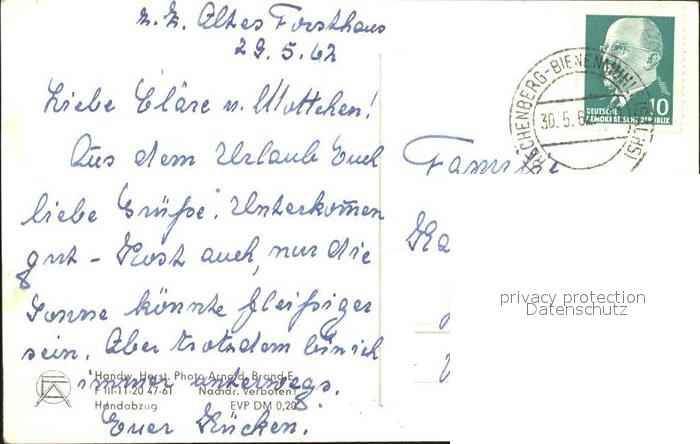 z. Z. Altes Forsthaus
29.5.62
Liebe Cläre u. Muttchen!
Aus dem Urlaub Euch
liebe Grüße. Unterkommen
gut - Kost auch, nur die
Sonne könnte fleißiger
sein. Aber trotzdem bin ich
immer unterwegs.
Euer
Handw. Horst. Photo-Arnold, Brand-E.
F III-11-20 47-61 Nachdr. verboten!
Handabzug EVP DM 0,20
RECHENBERG-BIENENMÜHLE
30.5.6
10
DEUTSCHE
DEMOKRATISCHE REPUBLIK
Familie
privacy protection
Datenschutz